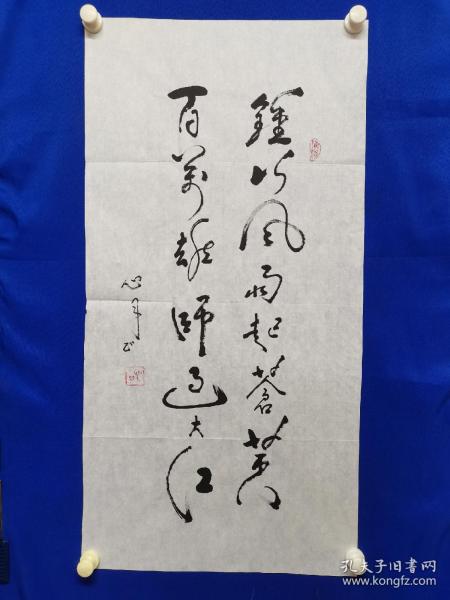 鍾山风雨起蒼黄
百萬雄師过大江
心平
孔夫子旧书网
www.kongfz.com